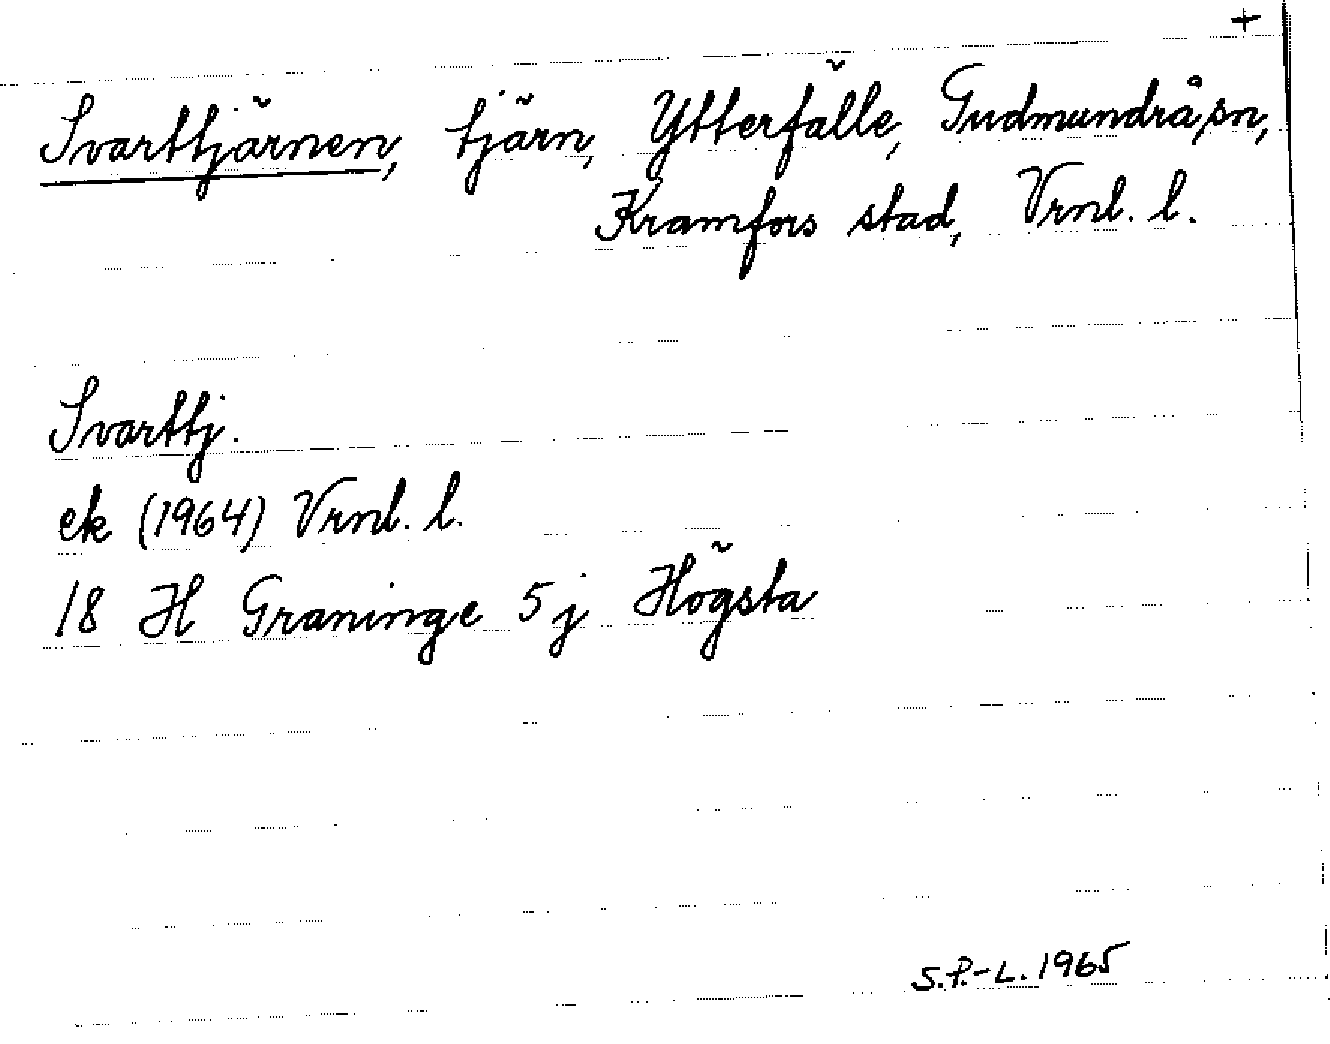 +
Svarttjärnen, tjärn, Ytterfälle, Gudmundrå sn,
Kramfors stad, Vrnl. l.
Svarttj.
ek (1964) Vrnl. l.
18 H Graninge 5 j Högsta
S.P.-L. 1965